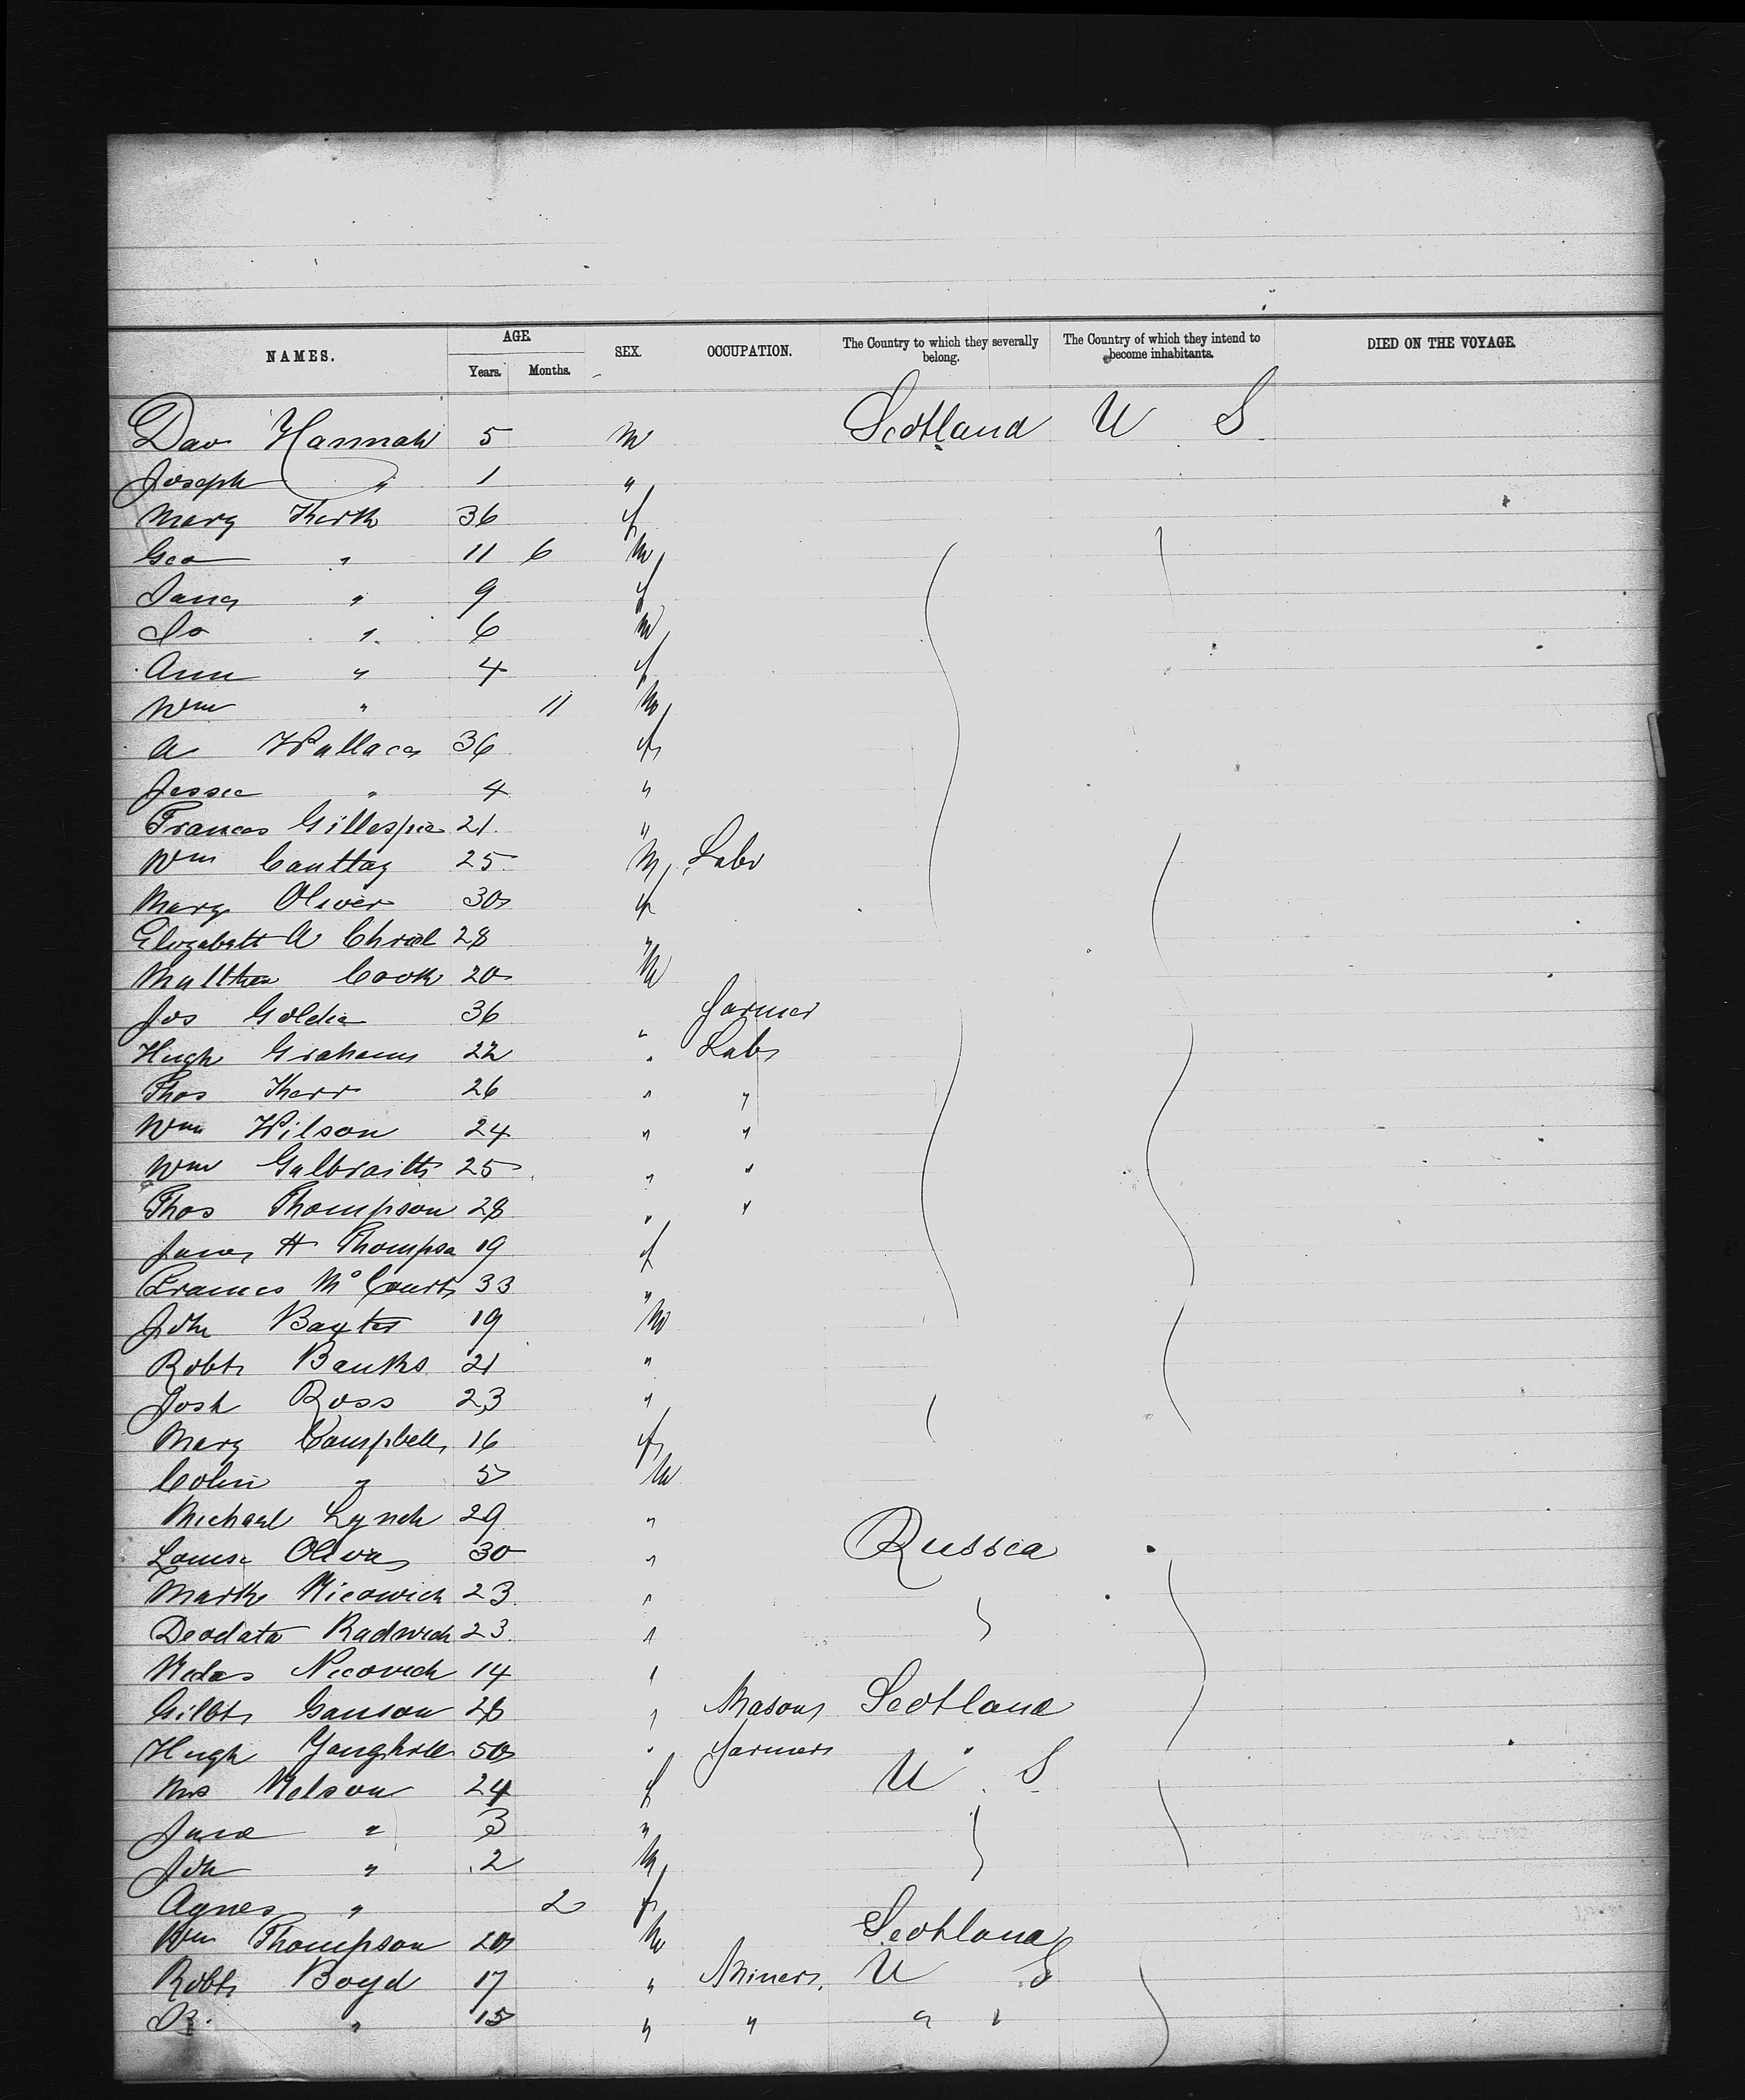 NAMES. AGE. SEX. OCCUPATION. The Country to which they severally belong. The Country of which they intend to become inhabitants. DIED ON THE VOYAGE.
Years. Months.
Dav Hannah 5 M Scotland U S
Joseph " 1 "
Mary Kerk 36 f
Geo " 11 6 M
Jane " 9 f
Jo " 6 M
Ann " 4 f
Wm " 11 M
A Wallace 36 f
Jessie " 4 "
Frances Gillespie 21 "
Wm Canttay 25 M Labr
Mary Oliver 30 f
Elizabeth A 28 "
Matthew Cook 20 M
Jos Goldie 36 " farmer
Hugh Graham 22 " Labr
Thos Kerr 26 " "
Wm Wilson 24 " "
Wm Galbraith 25 " "
Thos Thompson 28 " "
Janes H Thompso 19 f
Frances Mc Court 33 "
John Baxter 19 M
Robt Banks 21 "
Josh Ross 23 "
Mary Campbell 16 f
Colin " 5 M
Michael Lynch 29 "
Louise Oliva 30 " Russia
Mark Nicowich 23 "
Deodata Radwich 23 "
Necovich 14 "
Gilbt Ganson 28 " Mason Scotland
Hugh 50 " farmer "
Mrs Nelson 24 f U S
Jane " 3 "
Jon " 2 M
Agnes " 2 f
Wm Thompson 20 M Scotland
Robt Boyd 17 " Miners U S
R. " 15 " " " "